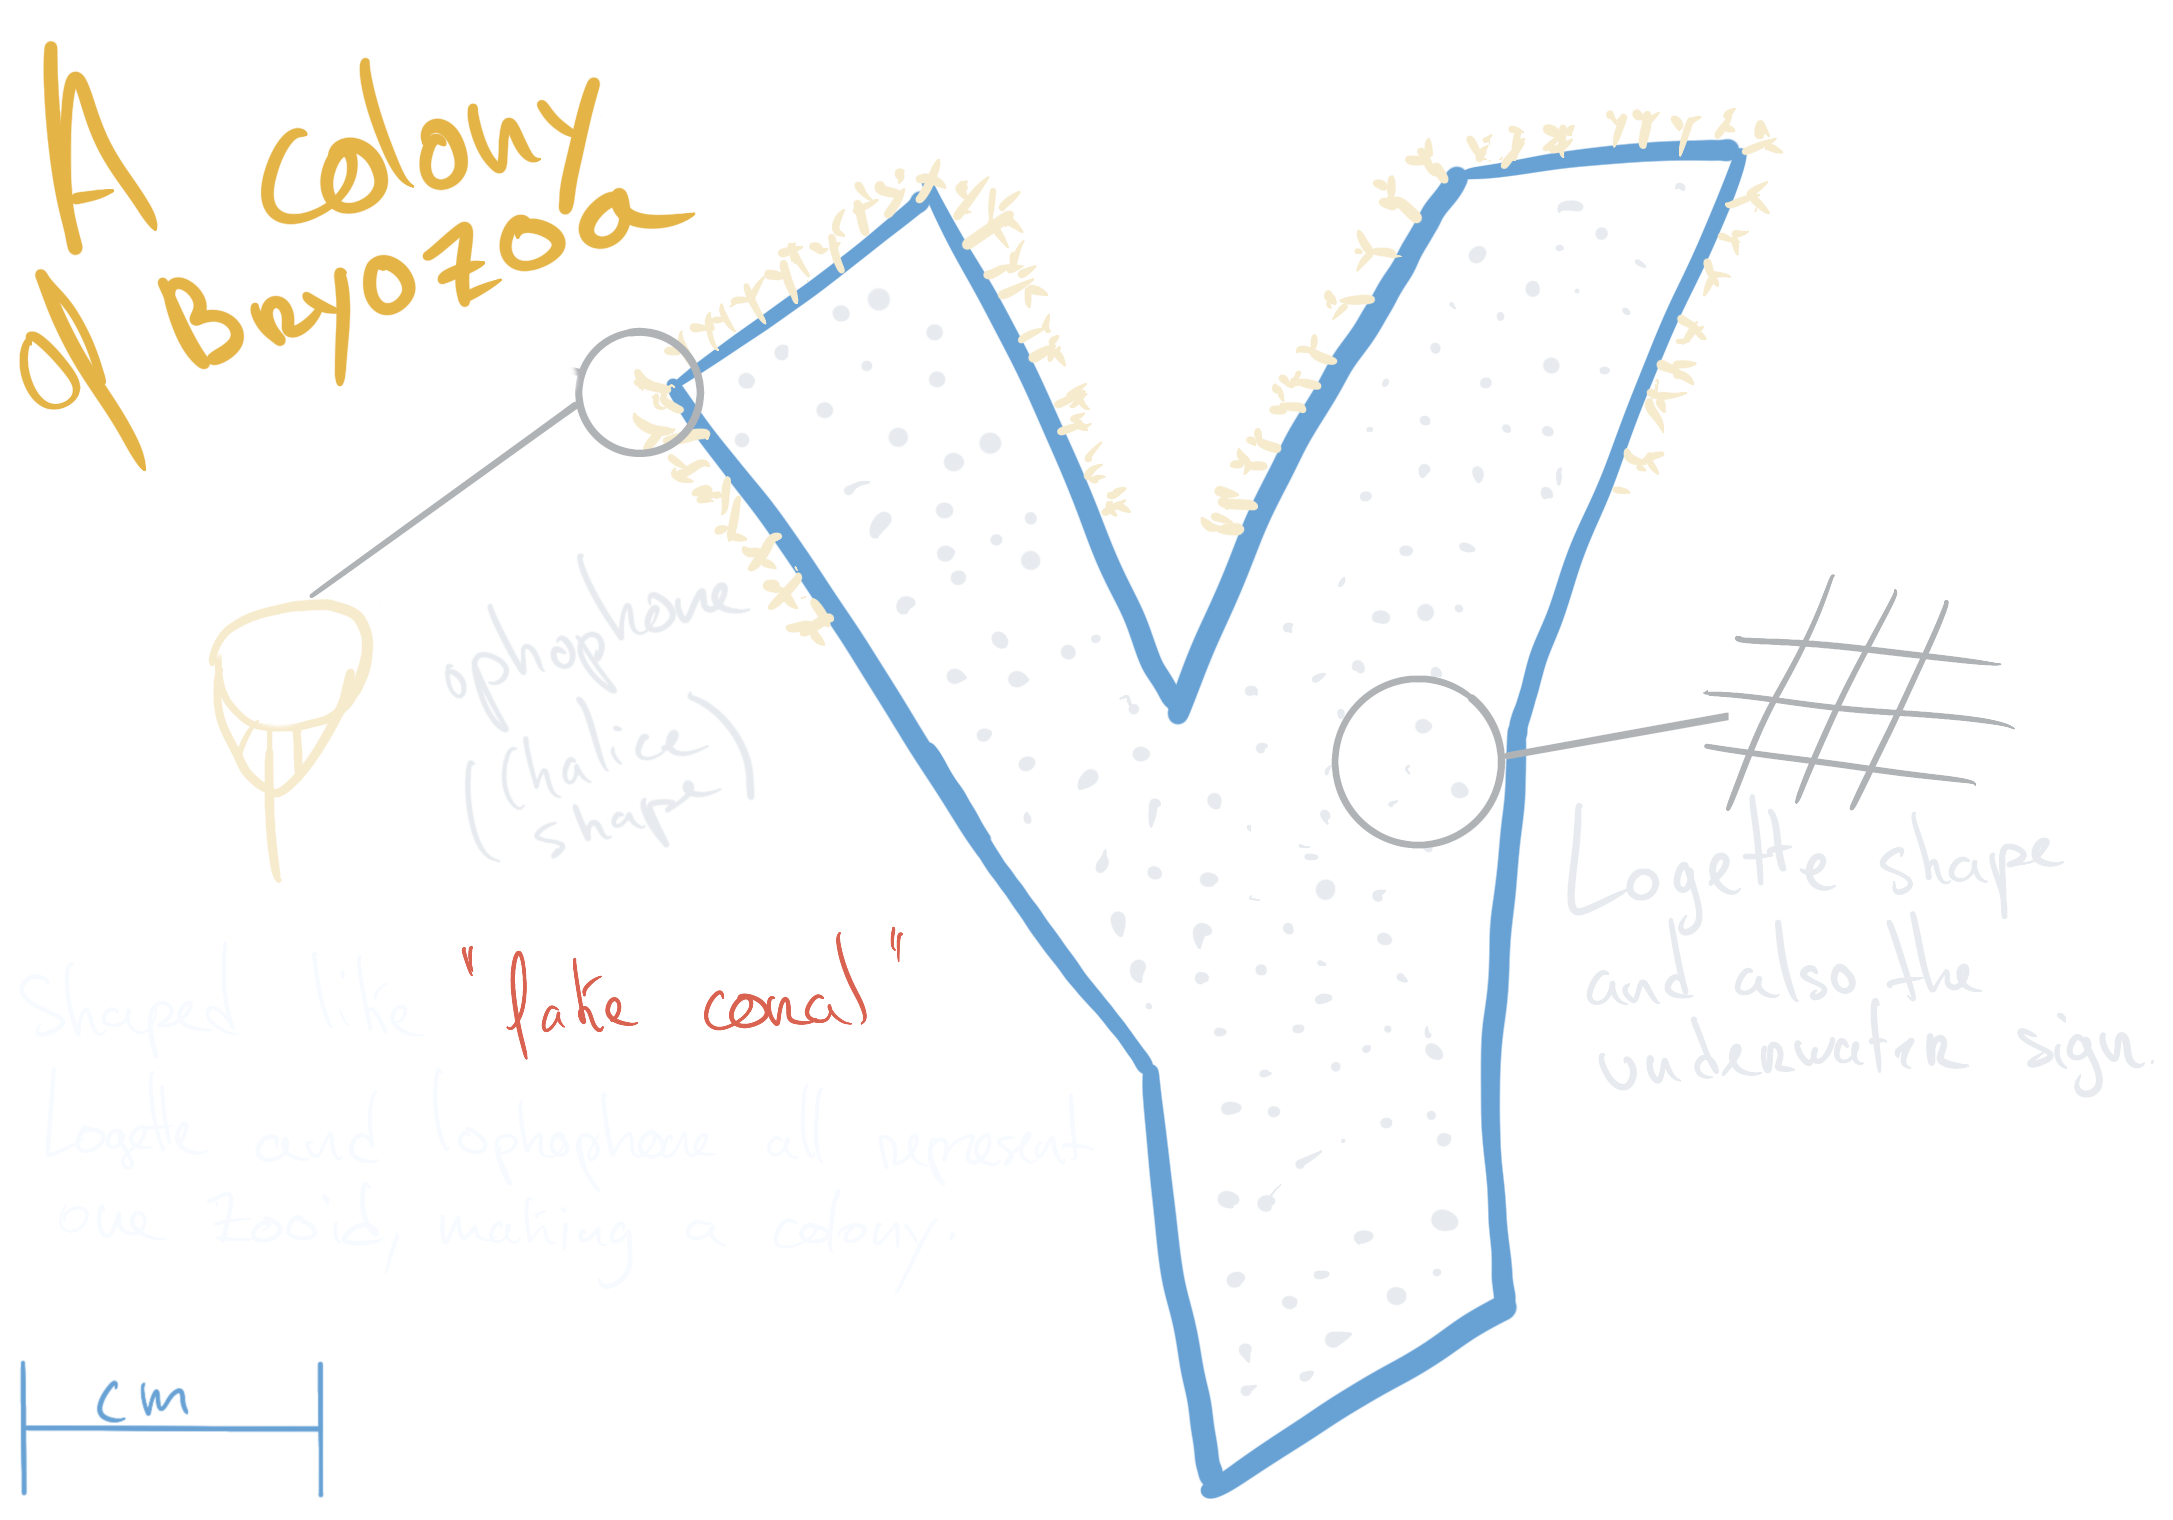 A colony
of Bryozoa
lophophore
(Chalice
shape)
Logette shape
and also the
underwater sign.
Shaped like "fake coral"
Logette and lophophore all represent
one zooid, making a colony.
cm